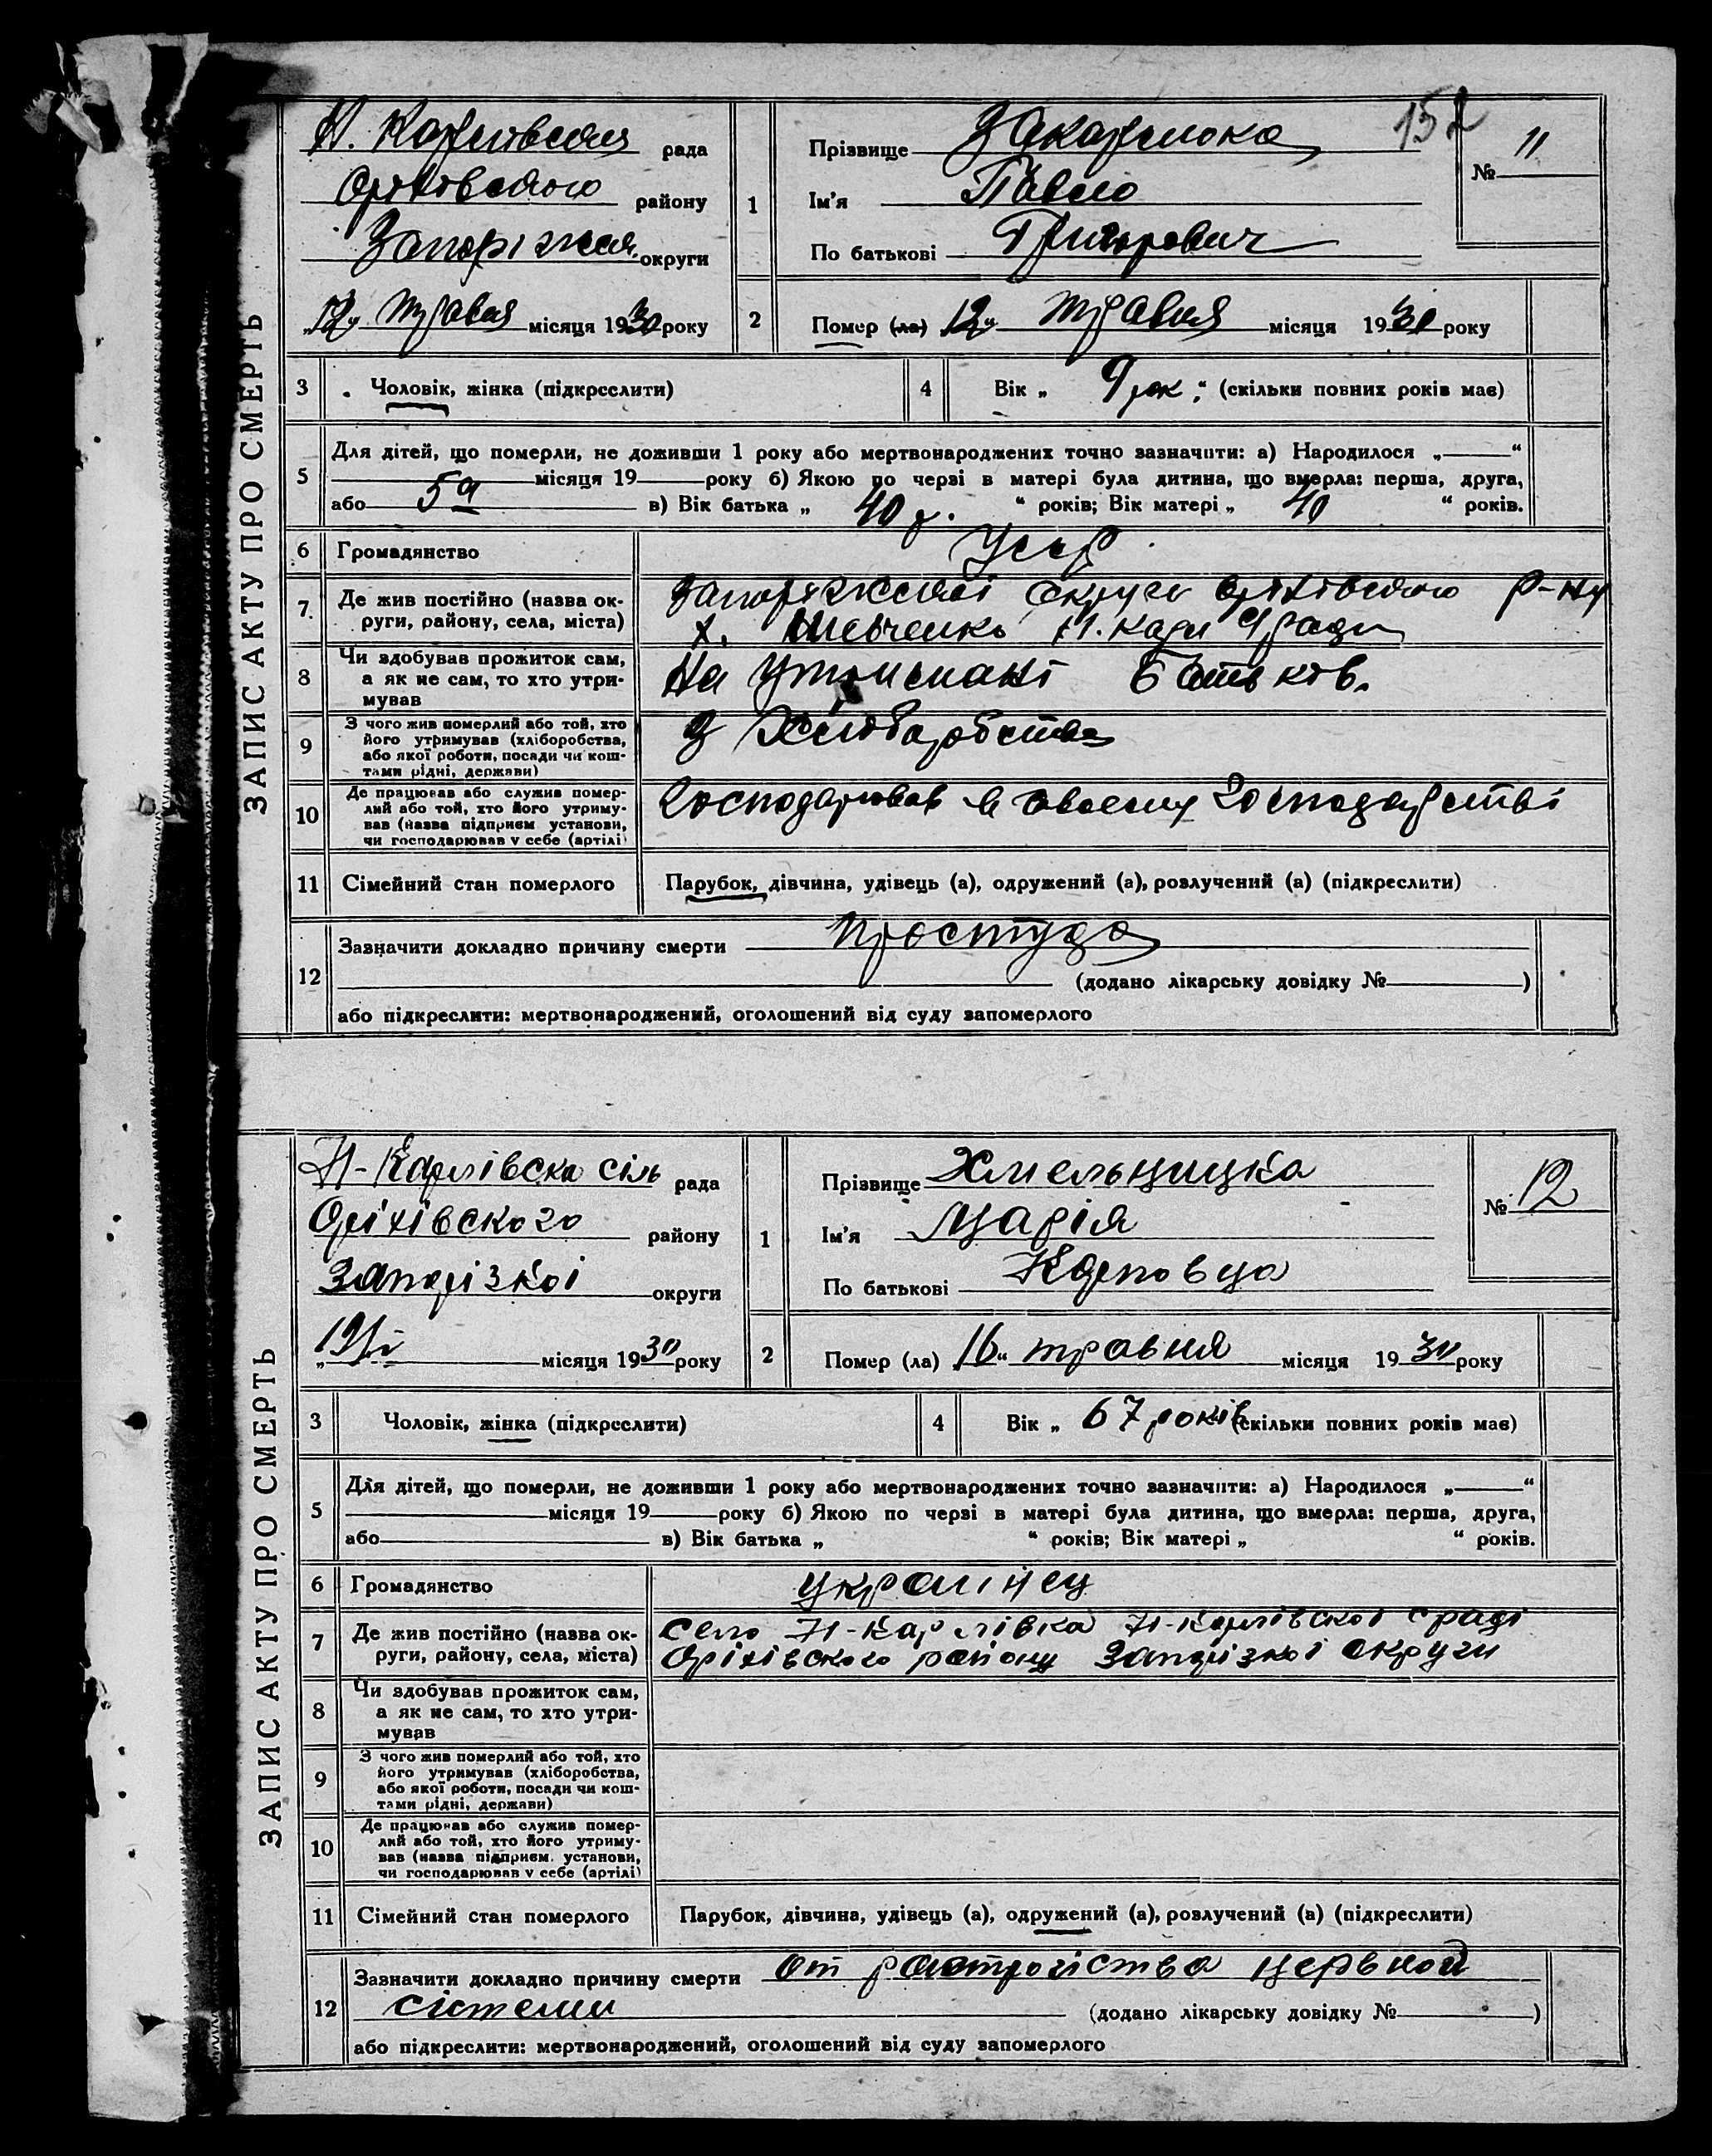 ЗАПИС АКТУ ПРО СМЕРТЬ
152
Н. Карлівская рада
Оріхівского району
Запоріжская округи
"12" травня місяця 1930 року
1
Прізвище Закарлюка
Ім'я Павло
По батькові Григорович
№ 11
2
Помер (ла) 12" травня місяця 1930 року
3 Чоловік, жінка (підкреслити)
4 Вік „ 9 рок " (скільки повних років має)
5 Для дітей, що померли, не доживши 1 року або мертвонароджених точно зазначити: а) Народилося „ “
місяця 19 року б) Якою по черзі в матері була дитина, що вмерла: перша, друга,
або 5а в) Вік батька „ 40 р. “ років; Вік матері „ 40 “ років.
6 Громадянство Усср
7 Де жив постійно (назва ок-
руги, району, села, міста)
Запоріжскої округи Оріхівского р-ну
х. Шевченко Н. Карл с/ради
8 Чи здобував прожиток сам,
а як не сам, то хто утри-
мував
На утриманні батьків.
9 З чого жив померлий або той, хто
його утримував (хліборобства,
або якої роботи, посади чи кош-
тами рідні, держави)
З хліборобства
10 Де працював або служив помер-
лий або той, хто його утриму-
вав (назва підприєм установи,
чи господарював у себе (артілі)
господарював в своему господарстві
11 Сімейний стан померлого Парубок, дівчина, удівець (а), одружений (а), розлучений (а) (підкреслити)
12 Зазначити докладно причину смерти простуда
(додано лікарську довідку № )
або підкреслити: мертвонароджений, оголошений від суду запомерлого
ЗАПИС АКТУ ПРО СМЕРТЬ
Н-Карлівска сіль рада
Оріхівского району
Запорізкої округи
місяця 1930 року
1
Прізвище Хмельницька
Ім'я Марія
По батькові Карповна
№ 12
2
Помер (ла) 16" травня місяця 1930 року
3 Чоловік, жінка (підкреслити)
4 Вік „ 67 років (скільки повних років має)
5 Для дітей, що померли, не доживши 1 року або мертвонароджених точно зазначити: а) Народилося „ “
місяця 19 року б) Якою по черзі в матері була дитина, що вмерла: перша, друга,
або в) Вік батька „ “ років; Вік матері „ “ років.
6 Громадянство украінец
7 Де жив постійно (назва ок-
руги, району, села, міста)
село Н-Карлівка Н-Карлівскоі с ради
Оріхівского району Запорізкоі округи
8 Чи здобував прожиток сам,
а як не сам, то хто утри-
мував
9 З чого жив померлий або той, хто
його утримував (хліборобства,
або якої роботи, посади чи кош-
тами рідні, держави)
10 Де працював або служив помер-
лий або той, хто його утриму-
вав (назва підприєм. установи,
чи господарював у себе (артілі)
11 Сімейний стан померлого Парубок, дівчина, удівець (а), одружений (а), розлучений (а) (підкреслити)
12 Зазначити докладно причину смерти от нервной
сістеми (додано лікарську довідку № )
або підкреслити: мертвонароджений, оголошений від суду запомерлого